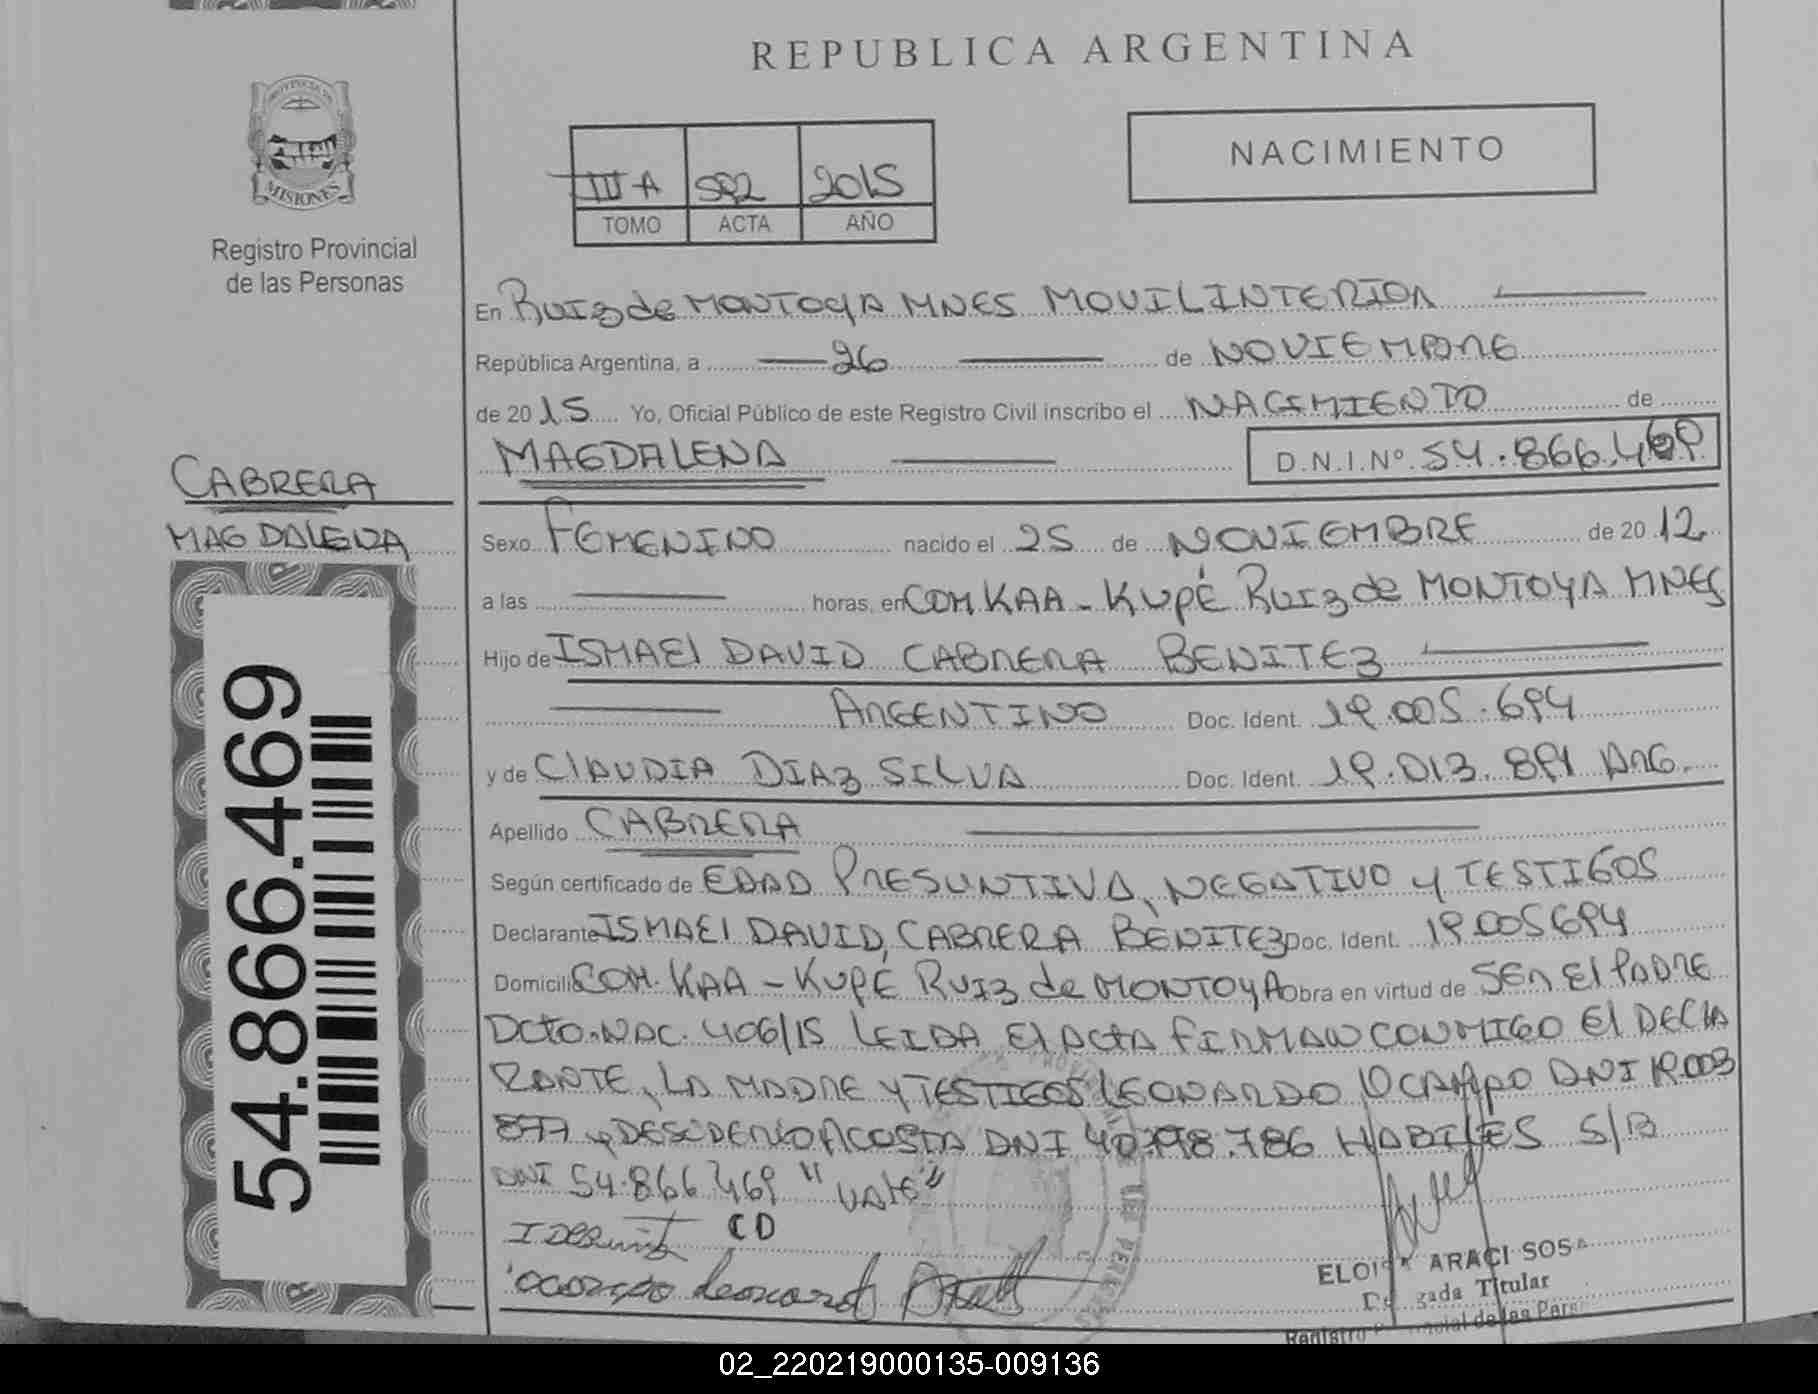 REPUBLICA ARGENTINA
NACIMIENTO
III A 592 2015
TOMO ACTA AÑO
PROVINCIA DE
MISIONES
Registro Provincial
de las Personas
En Ruiz de MONTOYA MNES MOVIL INTERIOR
República Argentina, a 26 de NOVIEMBRE
de 2015 Yo, Oficial Público de este Registro Civil inscribo el NACIMIENTO de
MAGDALENA D.N.I.Nº 54.866.469
CABRERA
MAGDALENA
Sexo FEMENINO nacido el 25 de NOVIEMBRE de 2012
a las horas, en COM KAA - KUPÉ Ruiz de MONTOYA MNES
Hijo de ISMAEl DAVID CABRERA BENITEZ
ARGENTINO Doc. Ident. 19.005.694
y de ClAUDIA DIAZ SILVA Doc. Ident. 19.013.891 ARG.
Apellido CABRERA
Según certificado de EDAD PRESUNTIVA, NEGATIVO y TESTIGOS
Declarante ISMAEl DAVID CABRERA BENITEZ Doc. Ident. 19.005694
Domicili COM. KAA - KUPÉ RUIZ de MONTOYA Obra en virtud de SER El PADRE
Dcto. NAC. 406/15 LEIDA El ActA FIRMAN CONMIGO El DECLA
RANTE, LA MADRE Y TESTIGOS LEONARDO OCAMPO DNI 19.003
877 y DESIDERIO ACOSTA DNI 40.798.786 HABILES S/B
DNI 54.866.469 "VALE"
CD
Ocampo Leonardo
ELOISA ARACI SOSA
Delegada Titular
54.866.469
02_220219000135-009136